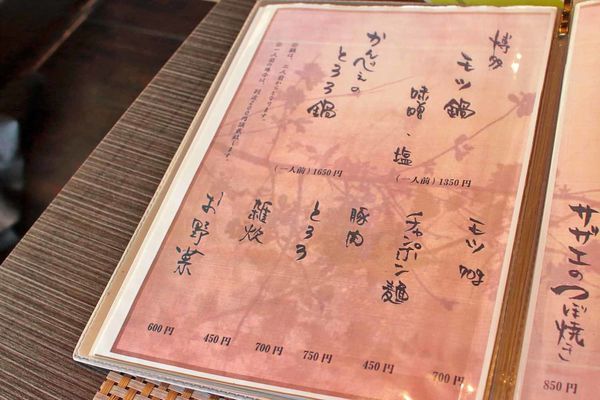 博多
モツ鍋
味噌・塩
(一人前) 1350円
かんべえの
とろろ鍋
(一人前) 1650円
モツ 70g
700円
チャンポン麺
450円
豚肉
750円
とろろ
700円
雑炊
450円
お野菜
600円
サザエのつぼ焼き
850円